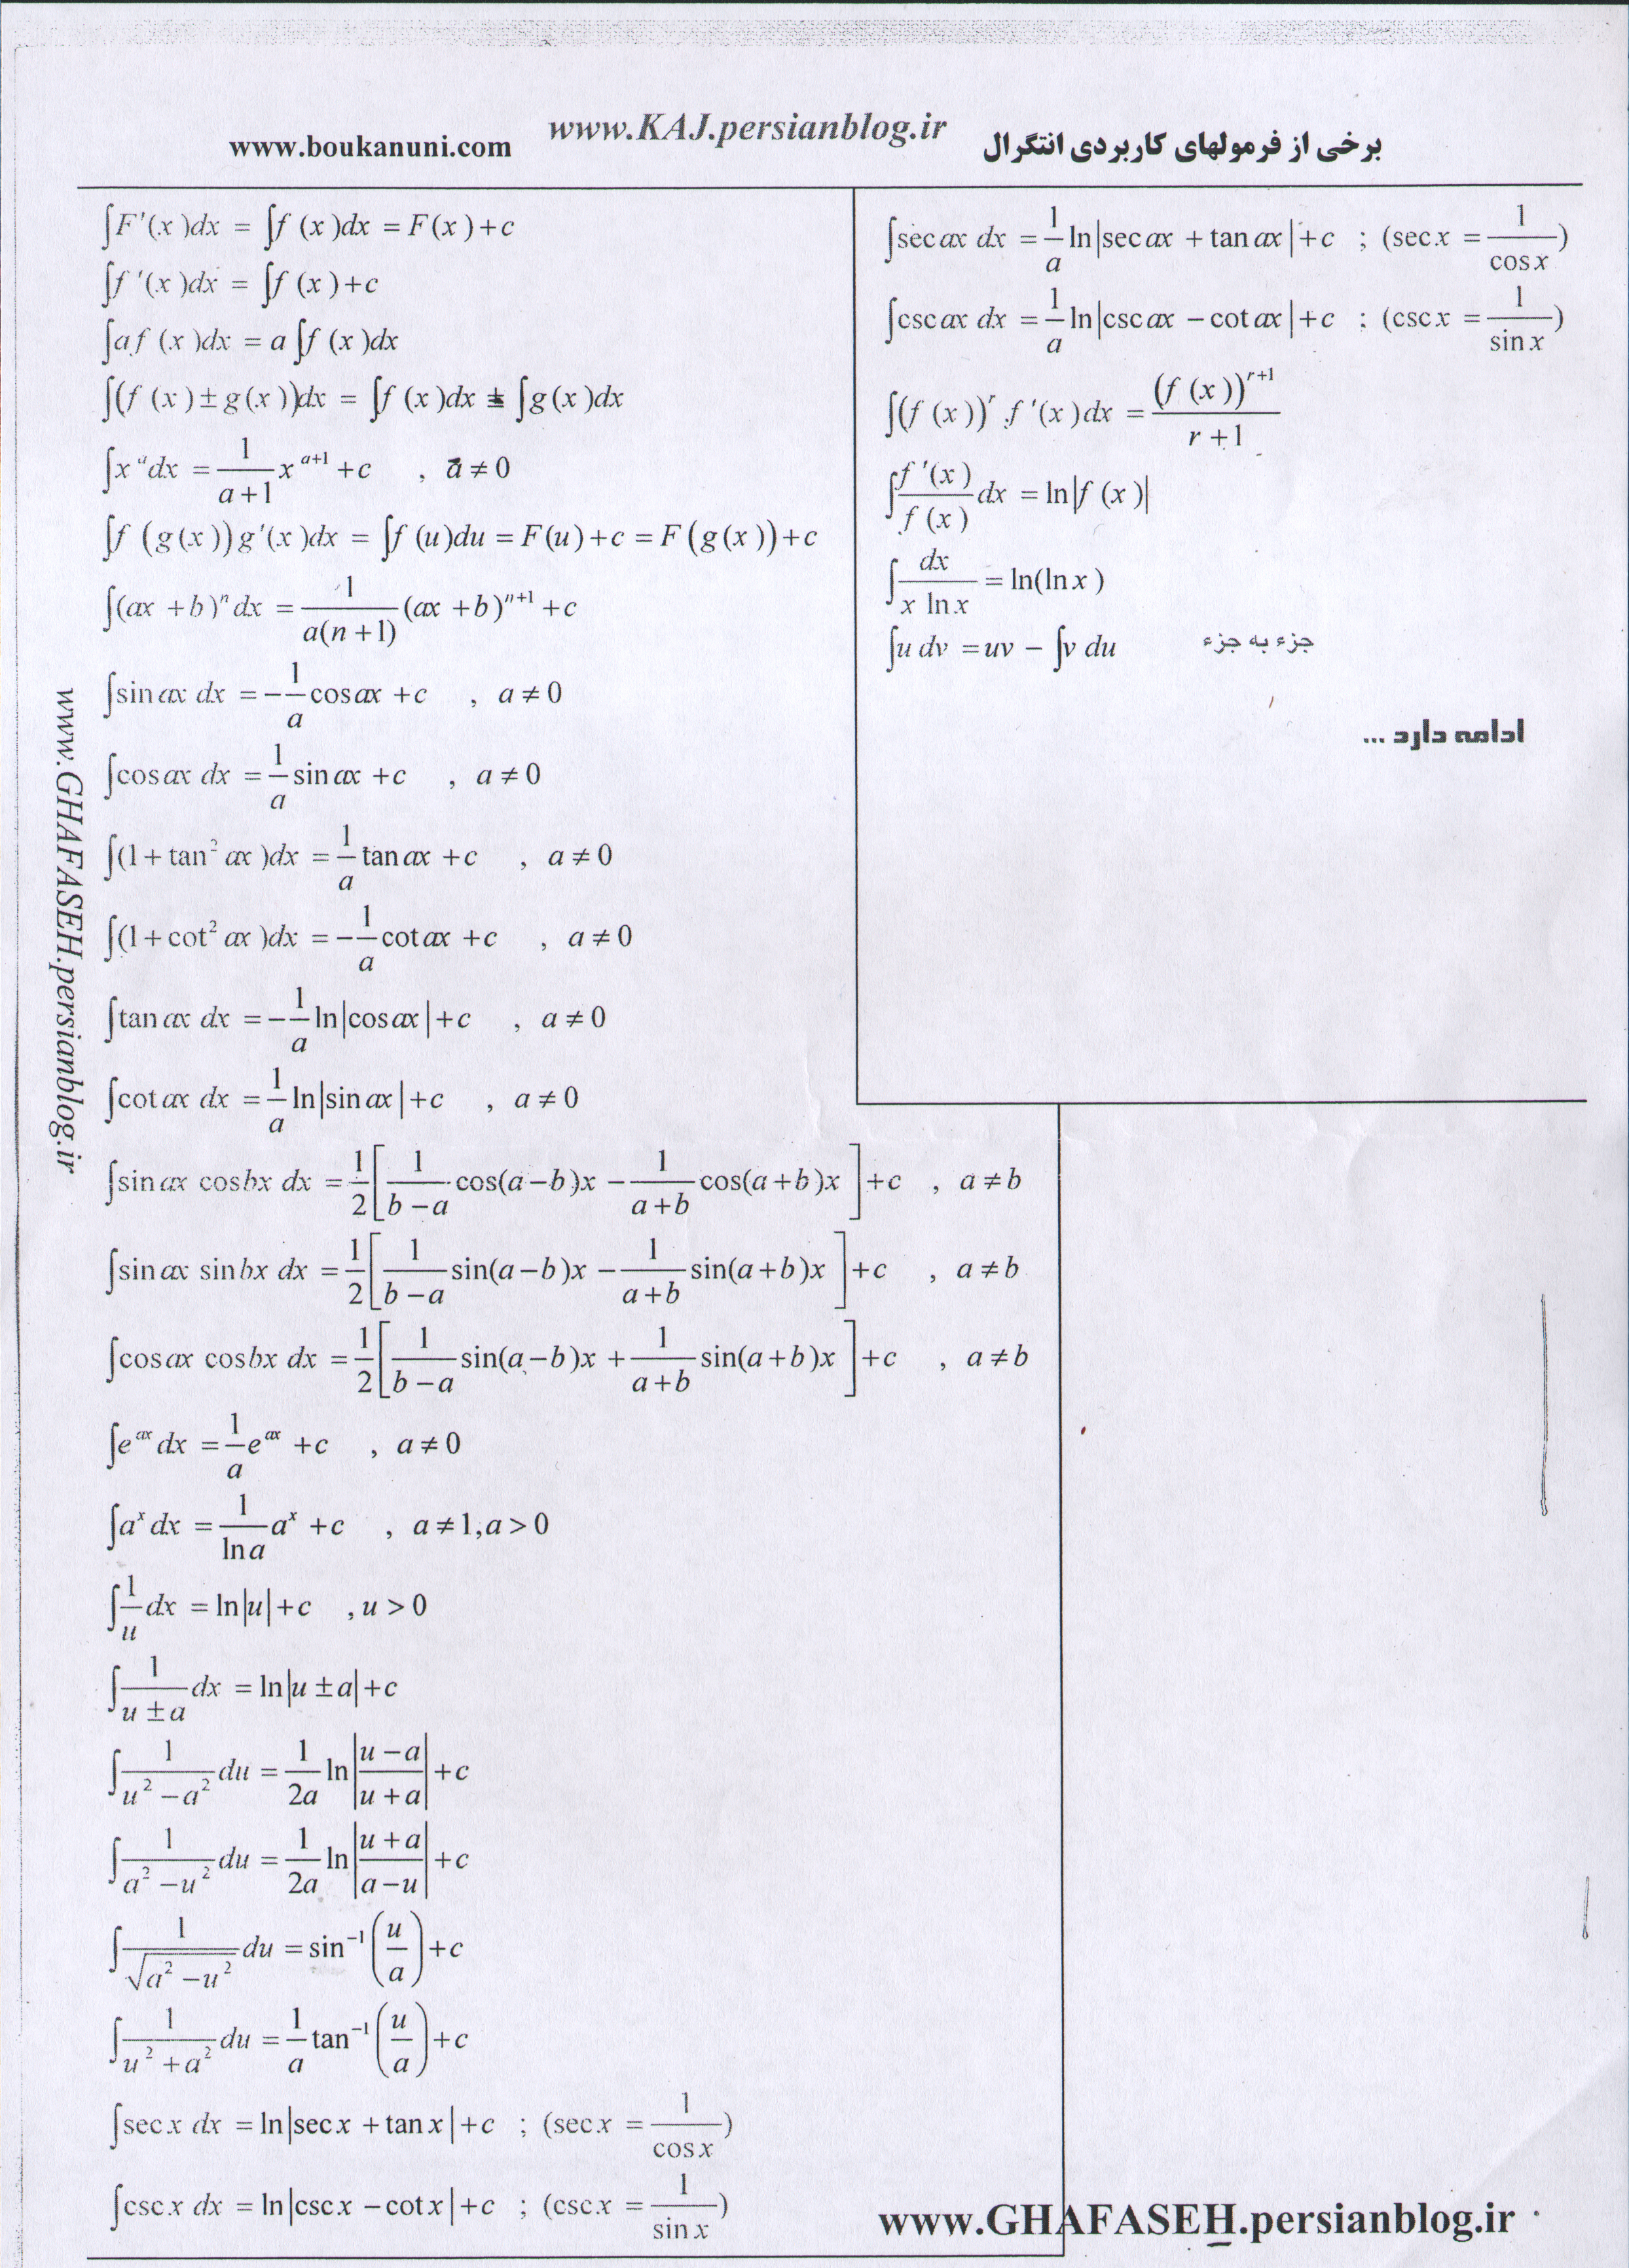 www.boukanuni.com www.KAJ.persianblog.ir برخی از فرمولهای کاربردی انتگرال
∫F'(x)dx = ∫f(x)dx = F(x)+c
∫f'(x)dx = ∫f(x)+c
∫af(x)dx = a∫f(x)dx
∫(f(x)±g(x))dx = ∫f(x)dx ± ∫g(x)dx
∫x^a dx = 1/(a+1) x^(a+1) +c , a≠0
∫f(g(x))g'(x)dx = ∫f(u)du = F(u)+c = F(g(x))+c
∫(ax+b)^n dx = 1/(a(n+1)) (ax+b)^(n+1) +c
∫sin ax dx = -1/a cos ax +c , a≠0
∫cos ax dx = 1/a sin ax +c , a≠0
∫(1+tan² ax)dx = 1/a tan ax +c , a≠0
∫(1+cot² ax)dx = -1/a cot ax +c , a≠0
∫tan ax dx = -1/a ln|cos ax|+c , a≠0
∫cot ax dx = 1/a ln|sin ax|+c , a≠0
∫sin ax cos bx dx = 1/2[1/(b-a) cos(a-b)x - 1/(a+b) cos(a+b)x]+c , a≠b
∫sin ax sin bx dx = 1/2[1/(b-a) sin(a-b)x - 1/(a+b) sin(a+b)x]+c , a≠b
∫cos ax cos bx dx = 1/2[1/(b-a) sin(a-b)x + 1/(a+b) sin(a+b)x]+c , a≠b
∫e^(ax) dx = 1/a e^(ax) +c , a≠0
∫a^x dx = 1/(ln a) a^x +c , a≠1,a>0
∫1/u dx = ln|u|+c ,u>0
∫1/(u±a) dx = ln|u±a|+c
∫1/(u²-a²) du = 1/(2a) ln|(u-a)/(u+a)|+c
∫1/(a²-u²) du = 1/(2a) ln|(u+a)/(a-u)|+c
∫1/√(a²-u²) du = sin⁻¹(u/a)+c
∫1/(u²+a²) du = 1/a tan⁻¹(u/a)+c
∫sec x dx = ln|sec x + tan x|+c ; (sec x = 1/cos x)
∫csc x dx = ln|csc x - cot x|+c ; (csc x = 1/sin x)
∫sec ax dx = 1/a ln|sec ax + tan ax|+c ; (sec x = 1/cos x)
∫csc ax dx = 1/a ln|csc ax - cot ax|+c ; (csc x = 1/sin x)
∫(f(x))^r .f'(x)dx = (f(x))^(r+1)/(r+1)
∫f'(x)/f(x) dx = ln|f(x)|
∫dx/(x ln x) = ln(ln x)
∫u dv = uv - ∫v du جزء به جزء
ادامه دارد ...
www.GHAFASEH.persianblog.ir
www.GHAFASEH.persianblog.ir